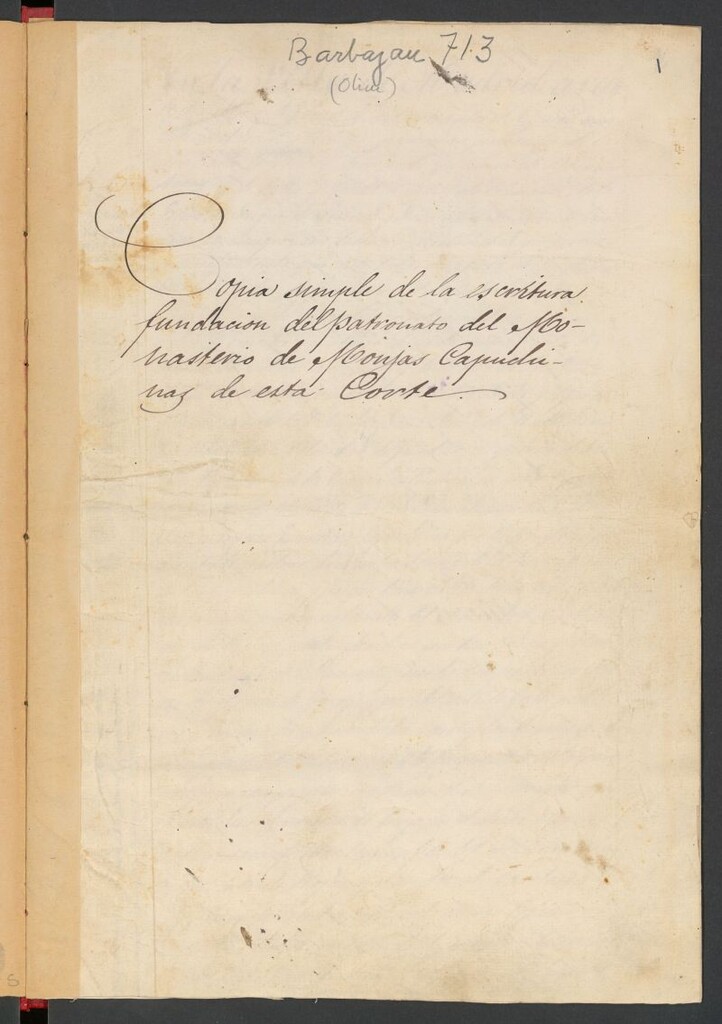 Barbazan 713
(Olim)
1
Copia simple de la escritura
fundacion del patronato del Mo-
nasterio de Monjas Capuchi-
nas de esta Corte.